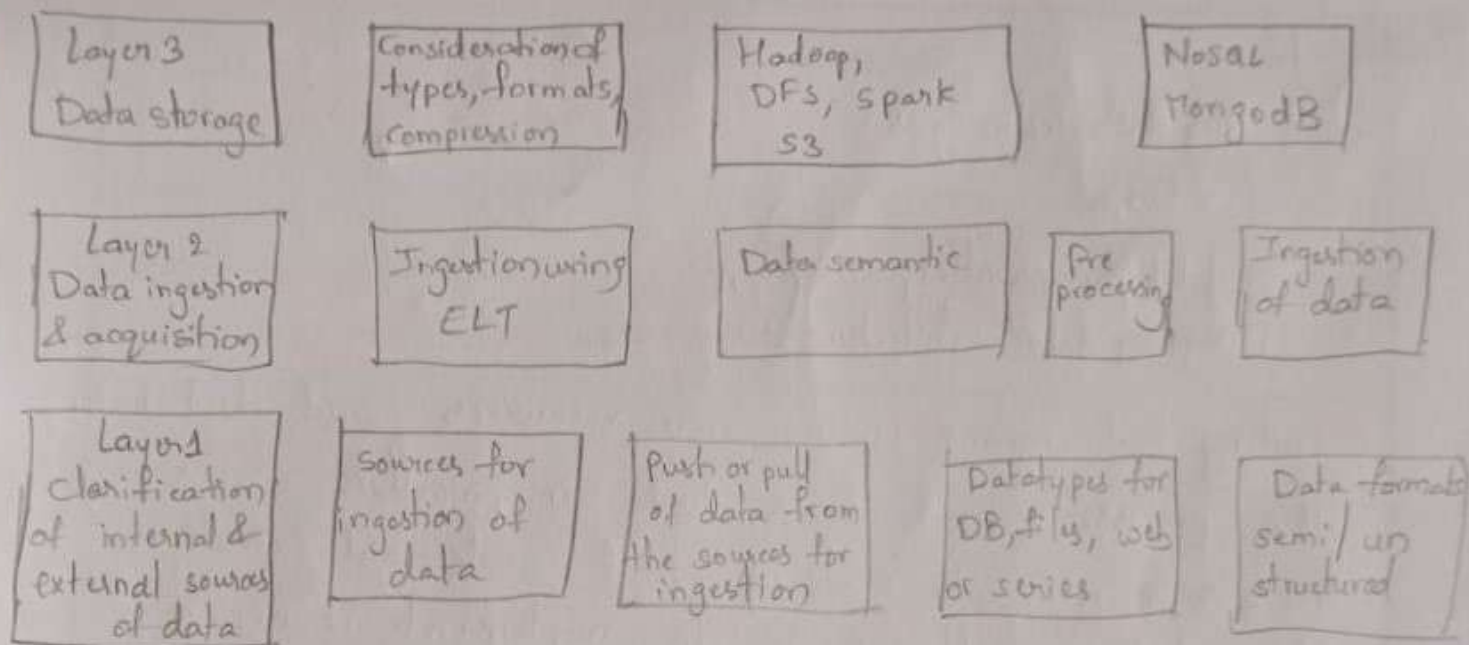 Layer 3
Data storage
Consideration of
types, formats,
compression
Hadoop,
DFS, Spark
S3
NoSQL
MongodB
Layer 2
Data ingestion
& acquisition
Ingestion using
ELT
Data semantic
Pre
processing
Ingestion
of data
Layer 1
Clarification
of internal &
external sources
of data
Sources for
ingestion of
data
Push or pull
of data from
the sources for
ingestion
Datatypes for
DB, files, web
or series
Data formats
semi/un
structured